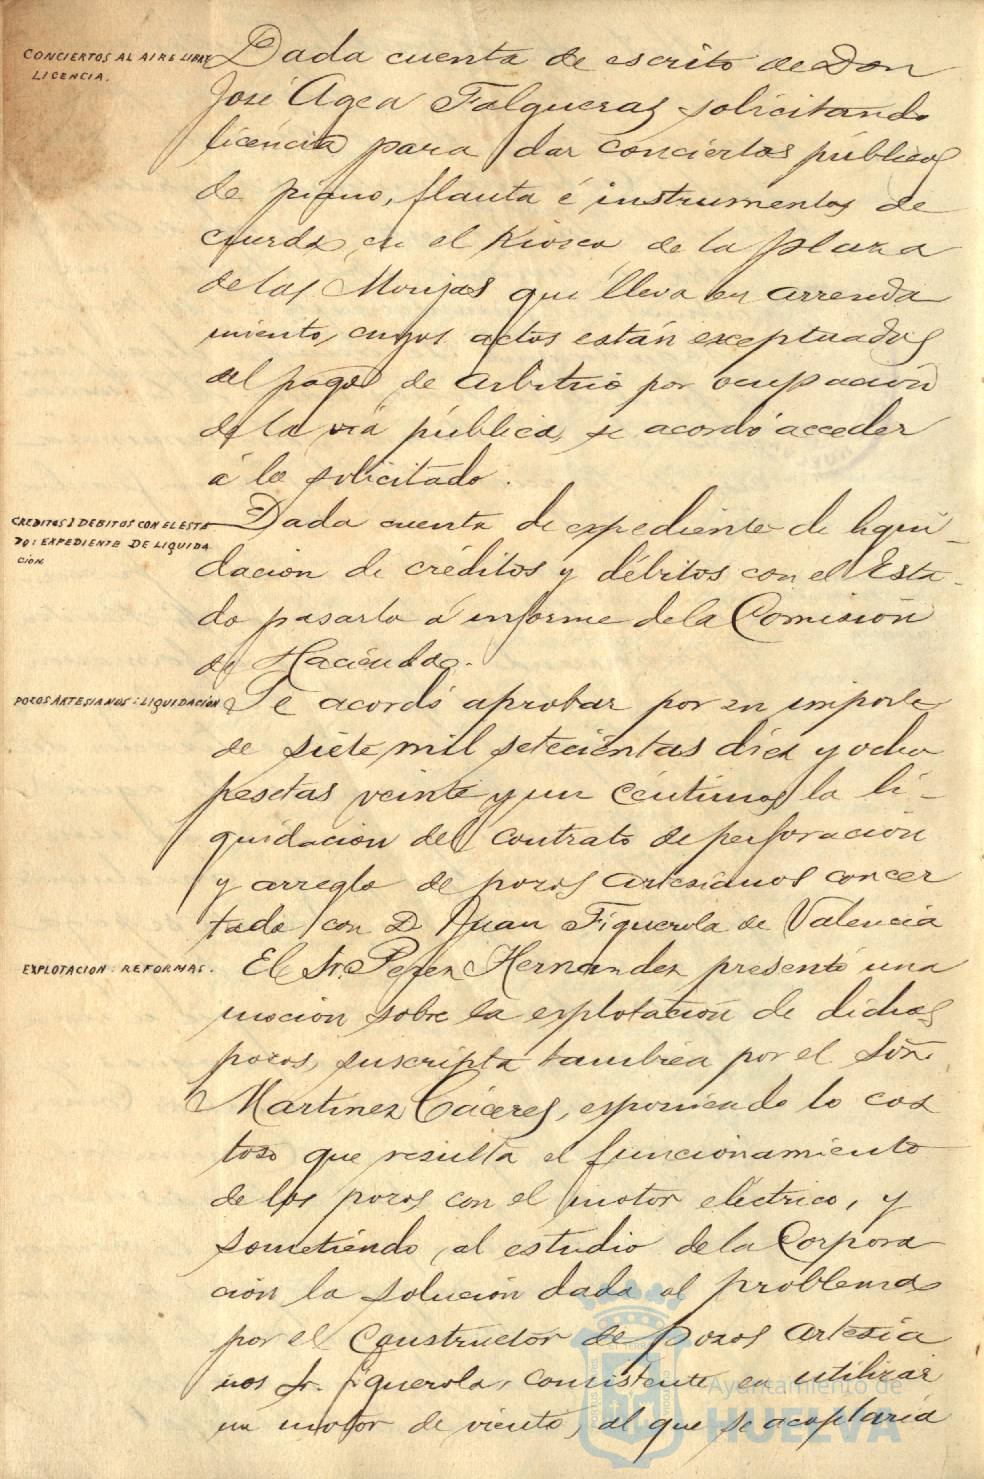 CONCIERTOS AL AIRE LIBRE
LICENCIA.
Dada cuenta de escrito de Don
José Agea Falgueras solicitando
licencia para dar conciertos públicos
de piano, flauta é instrumentos de
cuerda en el Kiosco de la plaza
de las Monjas que lleva en arrenda
miento, cuyos actos están exceptuados
del pago de arbitrio por ocupación
de la via pública, se acordó acceder
á lo solicitado.
CREDITOS Y DEBITOS CON EL ESTA
DO: EXPEDIENTE DE LIQUIDA
CION
Dada cuenta de expediente de liqui-
dacion de créditos y débitos con el Esta-
do pasarlo á informe de la Comisión
de Hacienda.
POZOS ARTESIANOS: LIQUIDACIÓN
Se acordó aprobar por su importe
de siete mil setecientas diez y ocho
pesetas veinte y un céntimos la li-
quidacion del contrato de perforación
y arreglo de pozos artesianos concer
tado con D. Juan Figuerola de Valencia
EXPLOTACION: REFORMAS.
El Sr. Perez Hernandez presentó una
mocion sobre la explotación de dichos
pozos, suscripta tambien por el Señr.
Martinez Cáceres, exponiendo lo cos
toso que resulta el funcionamiento
de los pozos con el motor eléctrico, y
sometiendo al estudio de la Corpora
cion la solucion dada al problema
por el Constructor de pozos artesia
nos Sr. Figuerola, consistente en utilizar
un motor de viento, al que se acoplaria
Ayuntamiento de
HUELVA